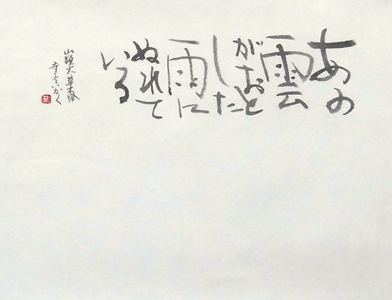 あの
雲
がおと
した
雨に
ぬれて
いる
山頭火 草木塔